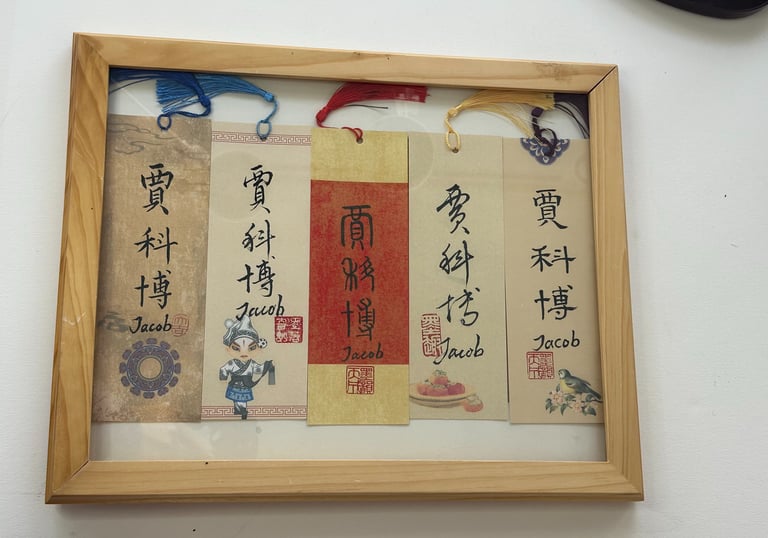 賈
科
博
Jacob
賈
科
博
Jacob
賈
科
博
Jacob
賈
科
博
Jacob
賈
科
博
Jacob